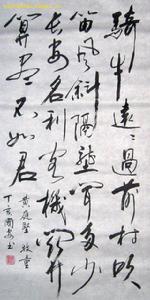 騎牛遠遠過前村吹
笛風斜隔壟聞多少
長安名利客機關
算盡不如君
黄庭堅 牧童
丁亥國安書